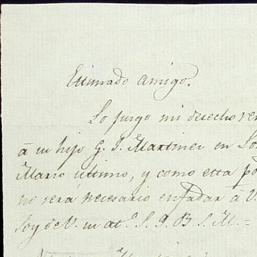 Estimado Amigo.
Lo juzgo mi derecho
á su hijo G. J. Martinez en
Marzo último, y como esta
no será necesario enfadar á V.
Soy de V. su at.º S. Q. B. S. M.